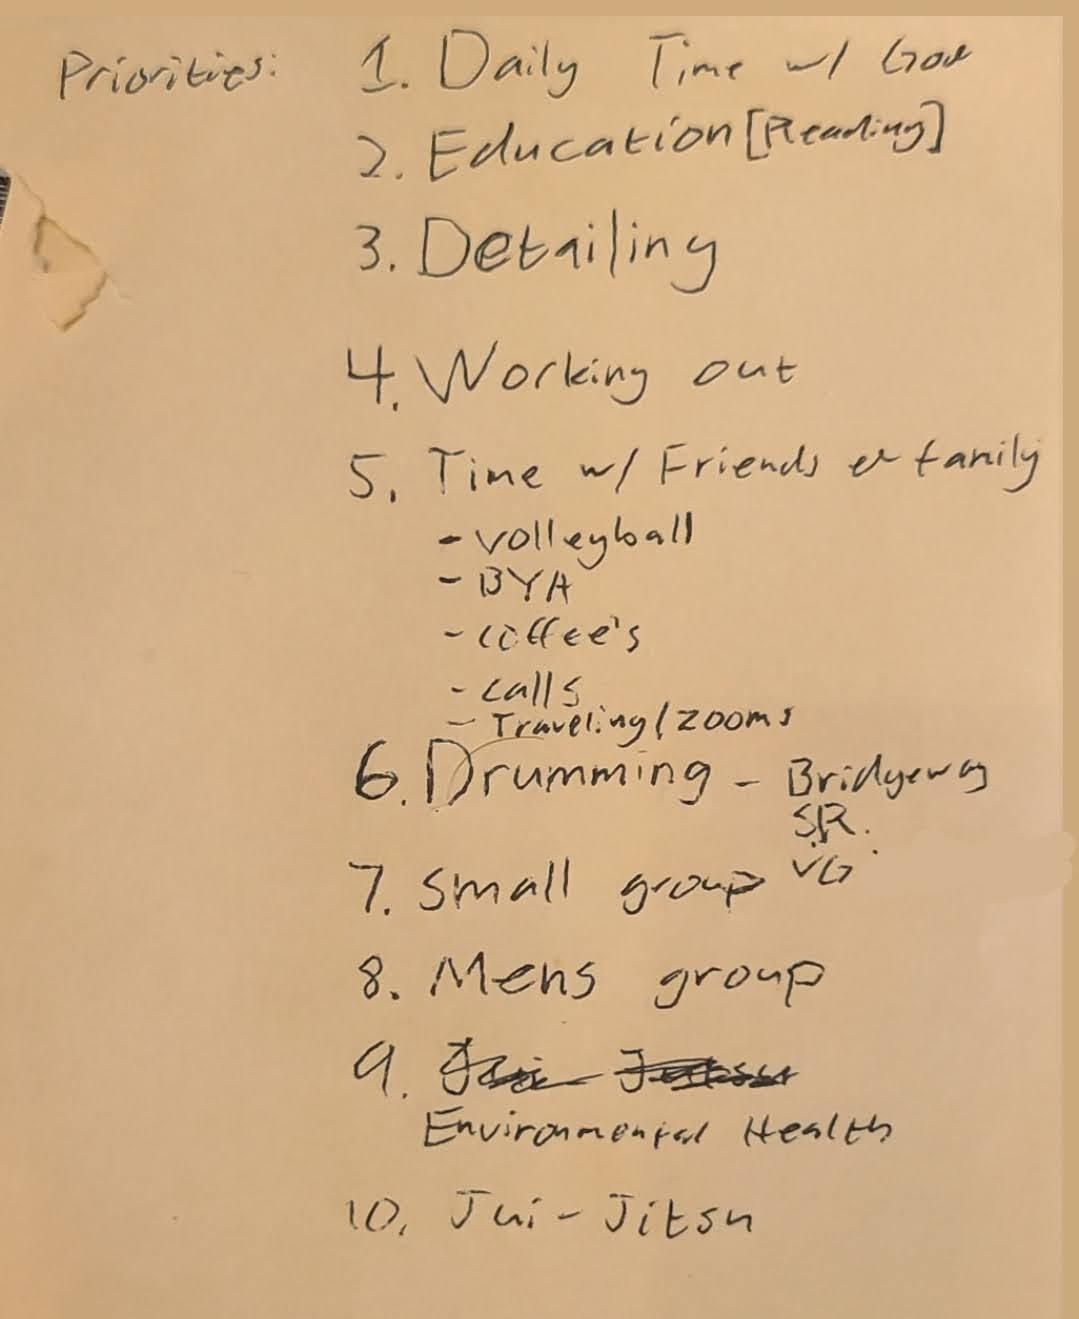 Priorities: 1. Daily Time w/ God
2. Education [Reading]
3. Detailing
4. Working out
5. Time w/ Friends & family
- volleyball
- BYA
- coffee's
- calls
- Traveling/zooms
6. Drumming - Bridgeway
S.R.
7. small group VG
8. Mens group
9.
Environmental Health
10. Jui-Jitsu